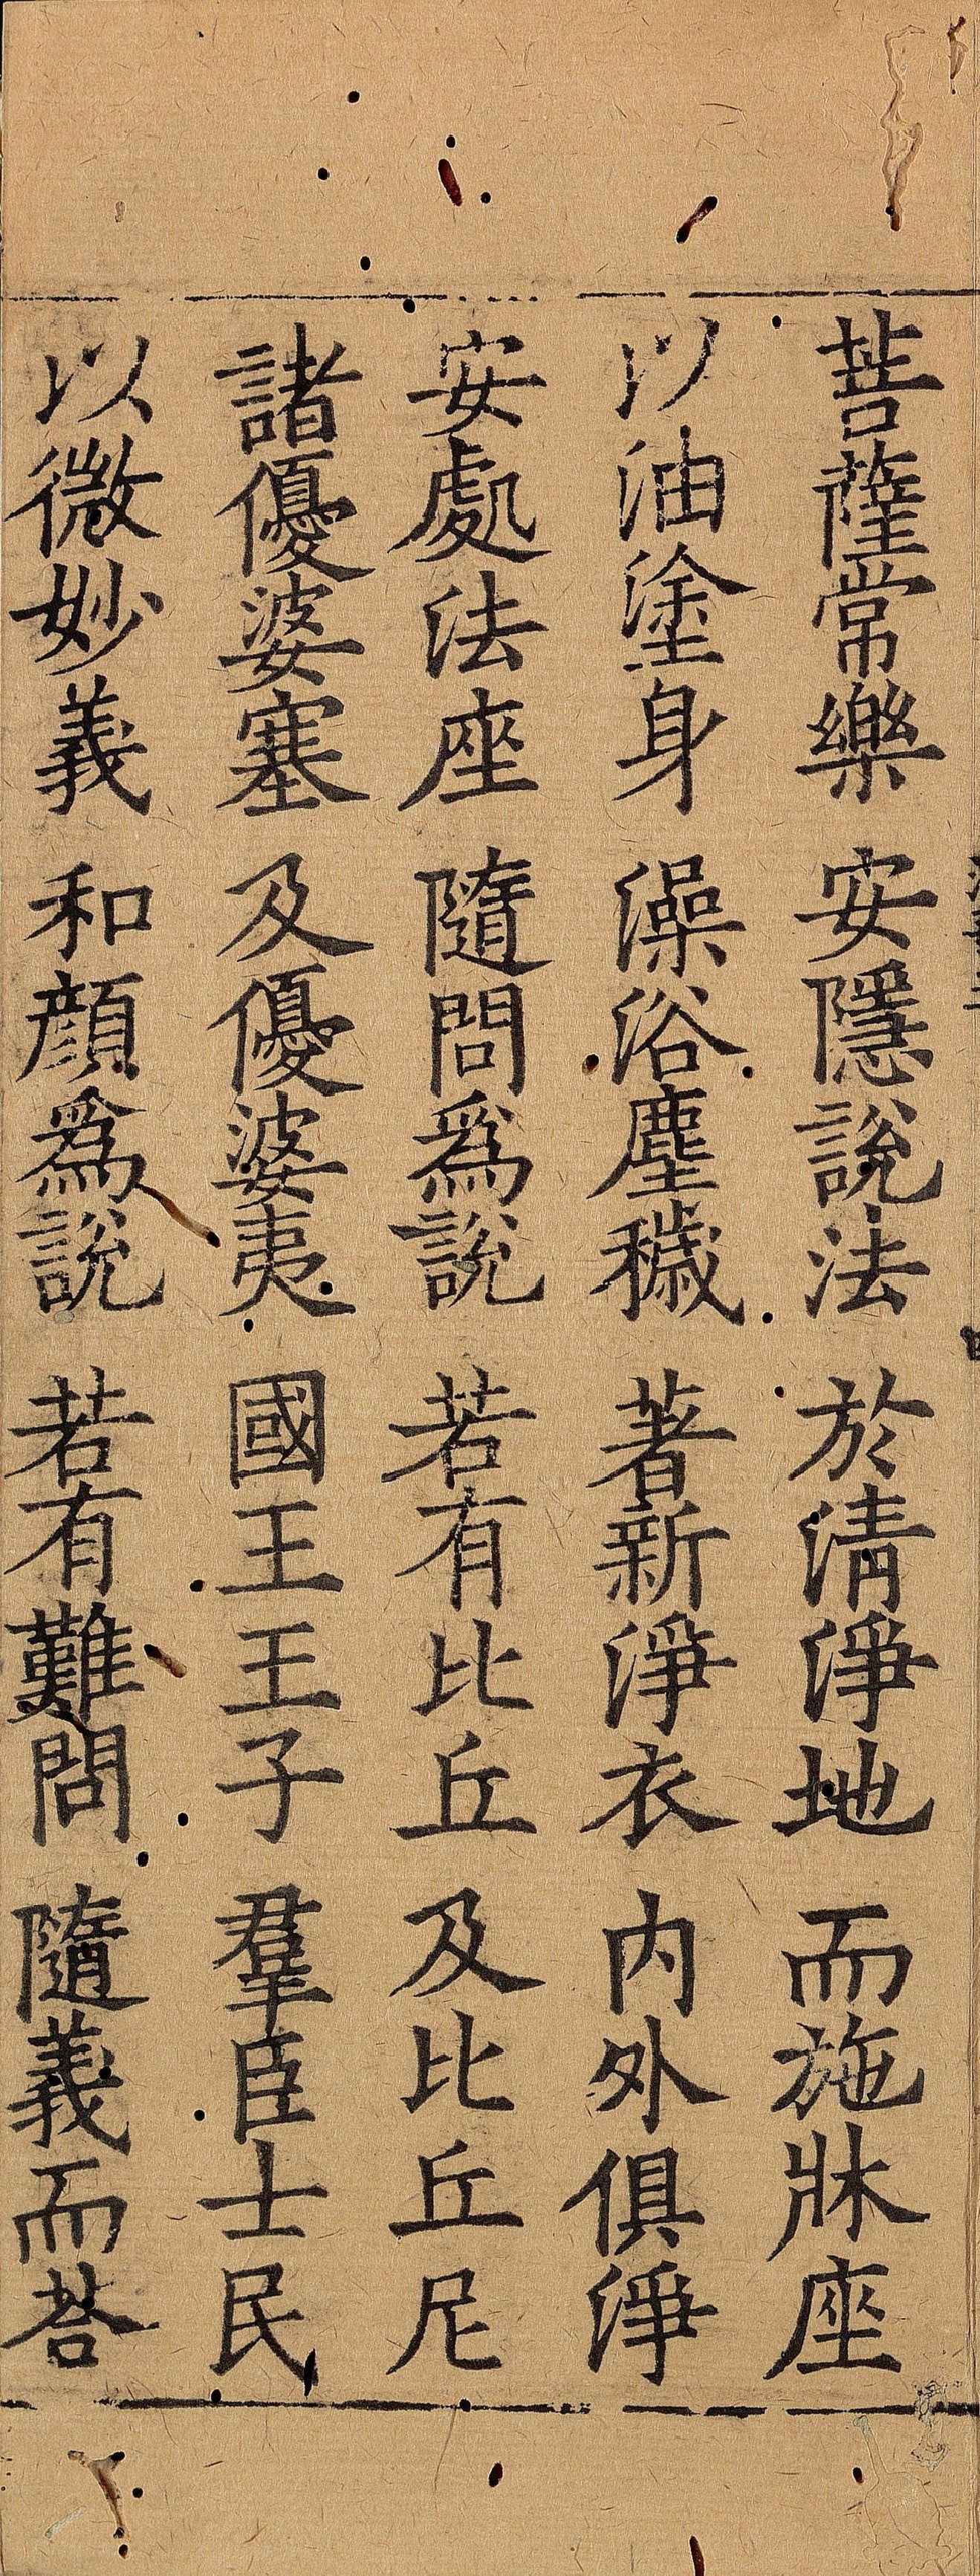 菩薩常樂 安隱說法 於清淨地 而施牀座
以油塗身 澡浴塵穢 著新淨衣 內外俱淨
安處法座 隨問爲說 若有比丘 及比丘尼
諸優婆塞 及優婆夷 國王王子 羣臣士民
以微妙義 和顔爲說 若有難問 隨義而荅